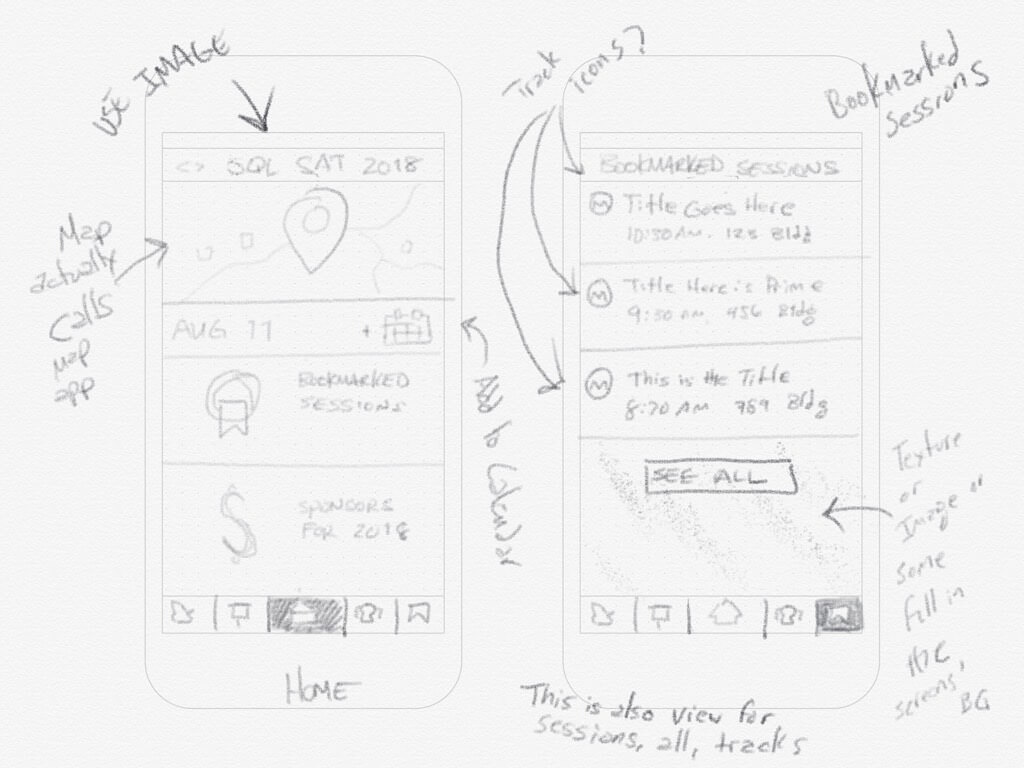 USE IMAGE
<> SQL SAT 2018
Map
actually
calls
map
app
AUG 11
+
Add to Calendar
BOOKMARKED
SESSIONS
SPONSORS
FOR 2018
HOME
Track icons?
Bookmarked
Sessions
BOOKMARKED SESSIONS
M Title Goes Here
10:30 AM. 123 Bldg
M Title Here is Prime
9:30 AM. 456 Bldg
M This is the Title
8:30 AM 789 Bldg
SEE ALL
Texture
or
Image or
some
fill in
the
screens,
BG
This is also view for
sessions, all, tracks